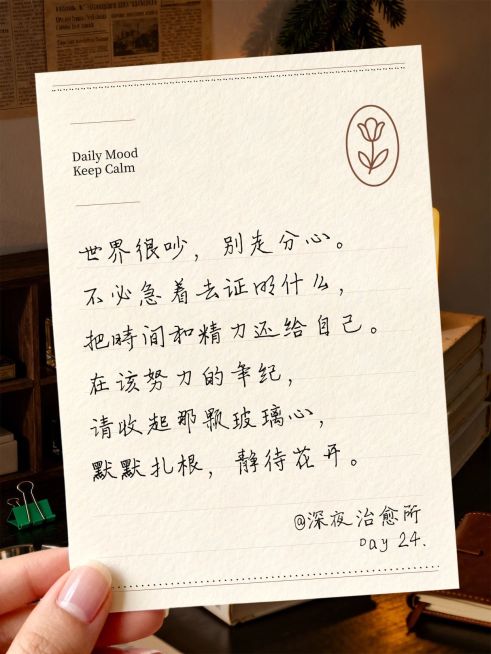 Daily Mood
Keep Calm
世界很吵，别走分心。
不必急着去证明什么，
把時间和精力还给自己。
在该努力的年纪，
请收起那颗玻璃心，
默默扎根，静待花开。
@深夜治愈所
Day 24.